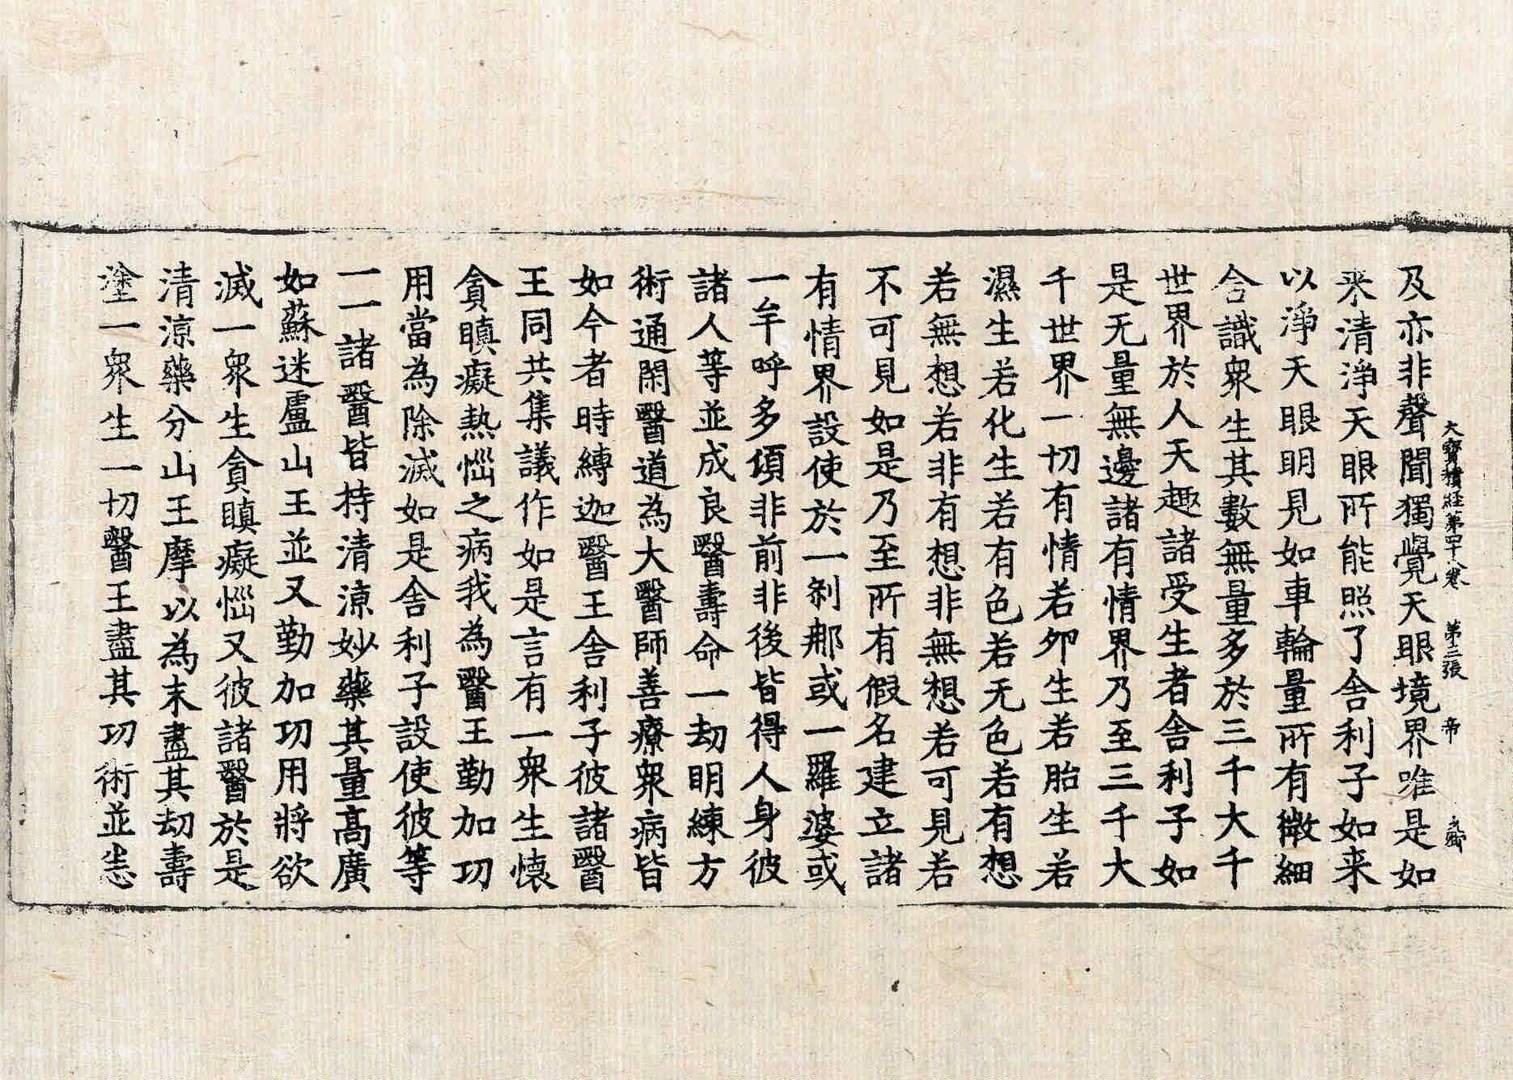 大寶積經第四十八卷 第三張 帝
及亦非聲聞獨覺天眼境界唯是如
来清淨天眼所能照了舍利子如来
以淨天眼明見如車輪量所有微細
含識衆生其數無量多於三千大千
世界於人天趣諸受生者舍利子如
是无量無邊諸有情界乃至三千大
千世界一切有情若卵生若胎生若
濕生若化生若有色若无色若有想
若無想若非有想非無想若可見若
不可見如是乃至所有假名建立諸
有情界設使於一刹那或一羅婆或
一牟呼多頃非前非後皆得人身彼
諸人等並成良醫壽命一劫明練方
術通閑醫道為大醫師善療衆病皆
如今者時縛迦醫王舍利子彼諸醫
王同共集議作如是言有一衆生懷
貪瞋癡熱惱之病我為醫王勤加功
用當為除滅如是舍利子設使彼等
一一諸醫皆持清涼妙藥其量高廣
如蘇迷盧山王並又勤加功用將欲
滅一衆生貪瞋癡惱又彼諸醫於是
清涼藥分山王摩以為末盡其劫壽
塗一衆生一切醫王盡其功術並悉